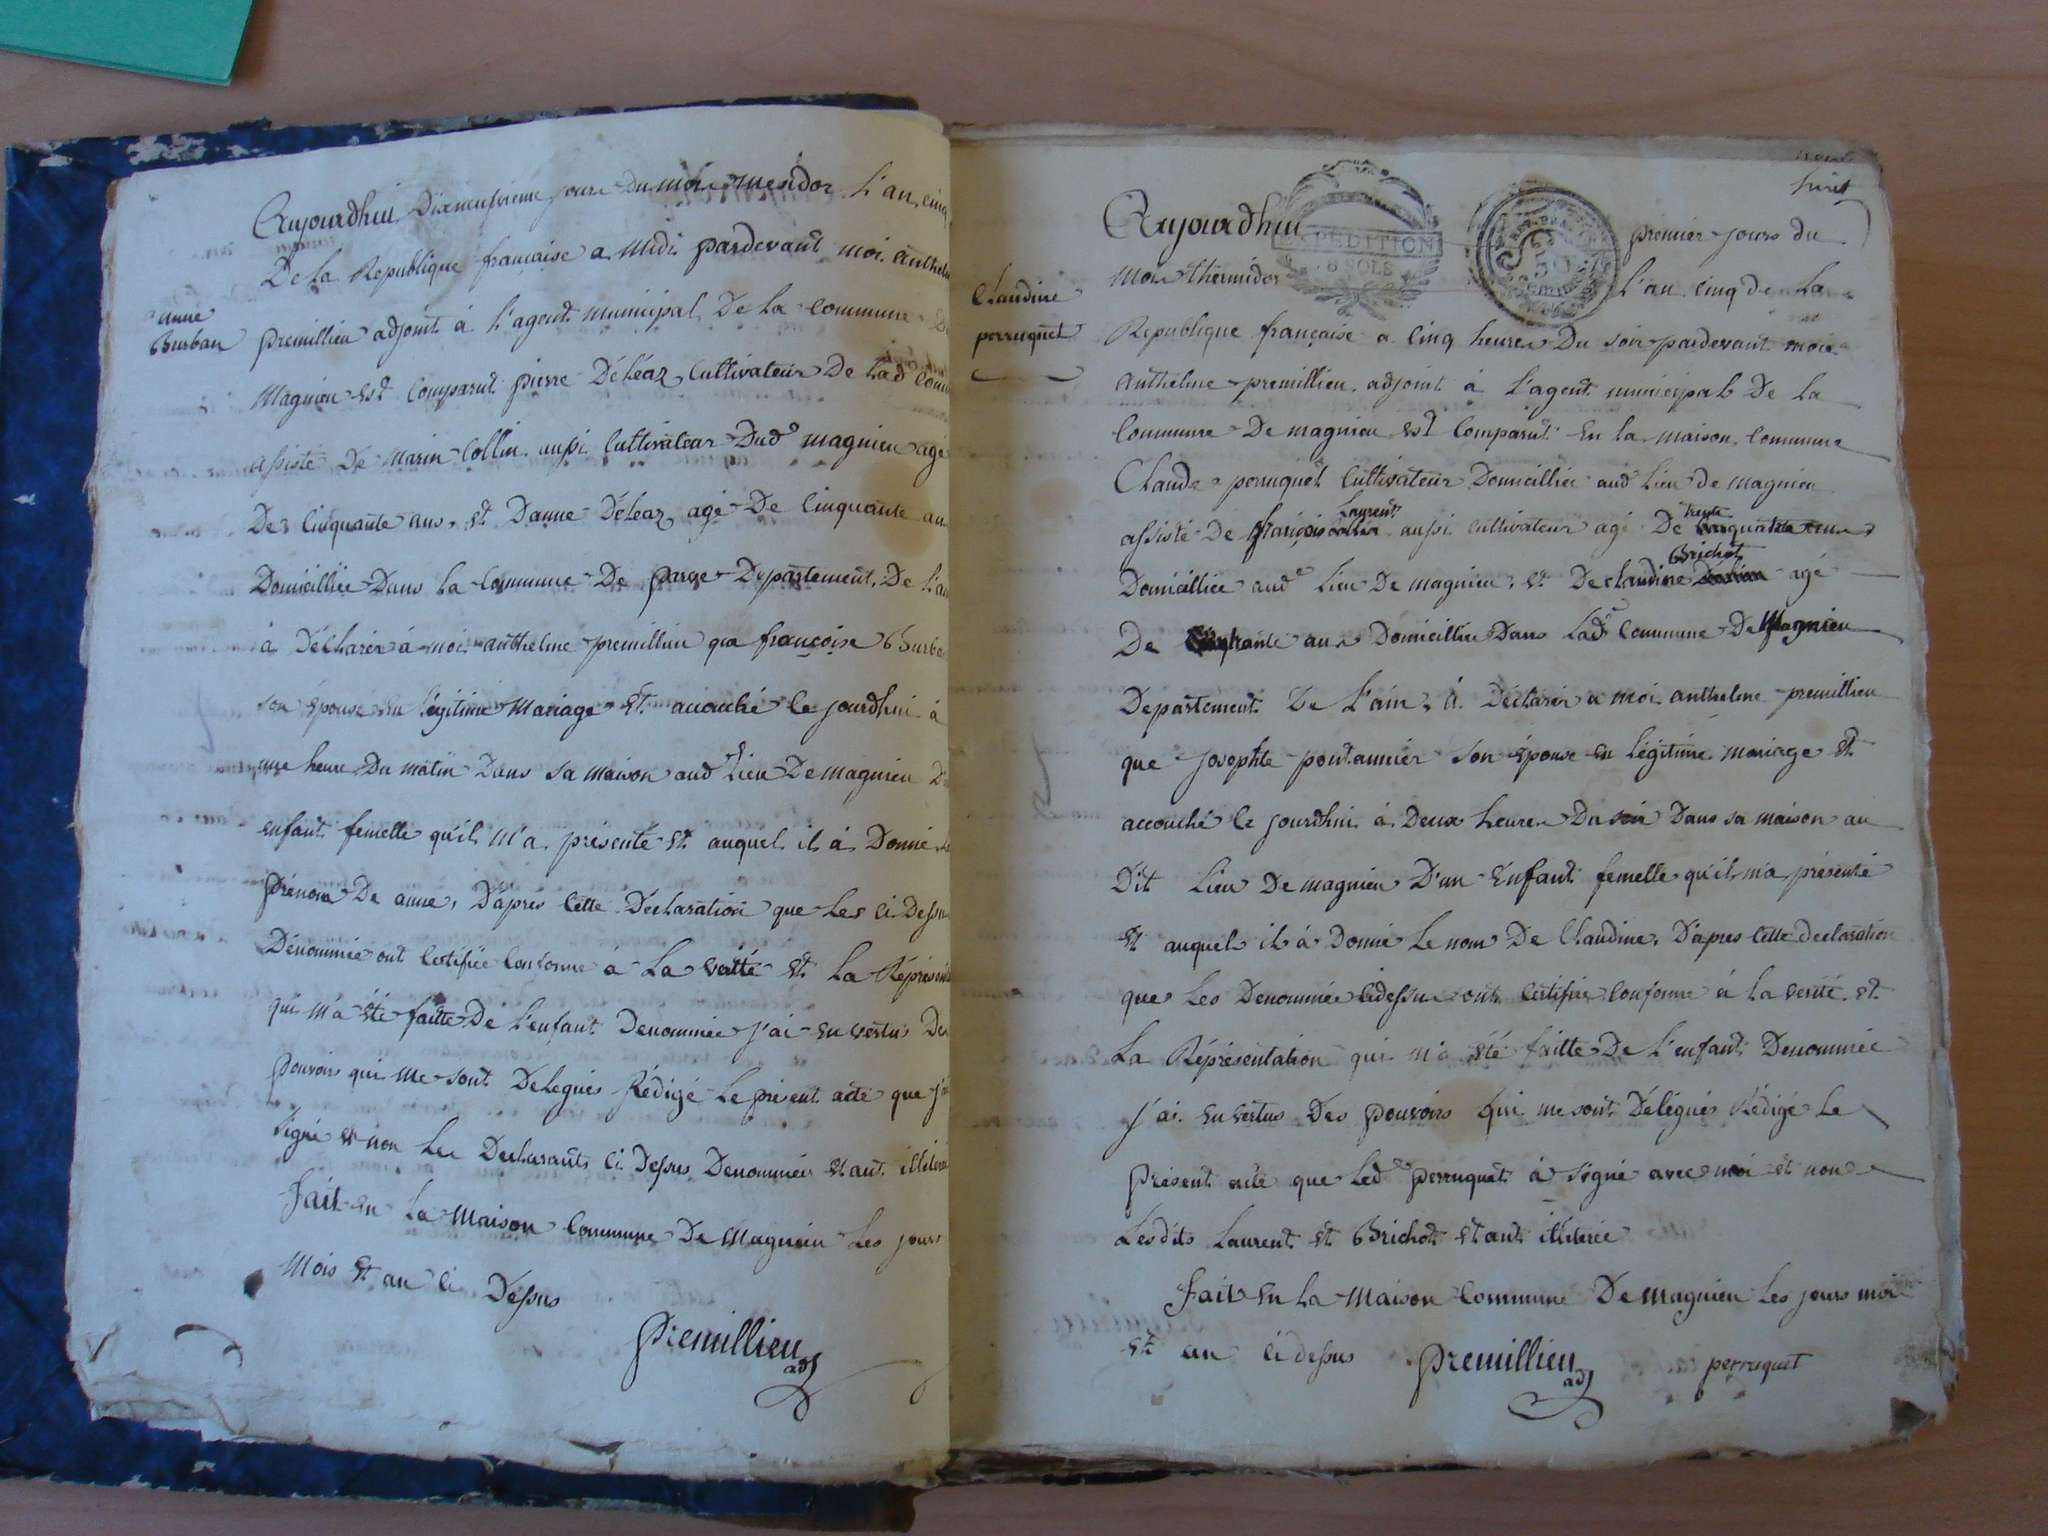 Aujourdhui Dixneufvieme jours du mois mesidor L'an cinq
De la Republique francaise a midi pardevant moi anthelm
anne
Burban
premillieu adjoint à l'agent municipal De la commune De
Magnieu est comparut pierre Déléaz Cultivateur De lad comm
assisté De marin Collin aussi Cultivateur Dude magnieu agé
De Cinquante ans, et Danne Déléaz agé De Cinquante an
Domicilliée Dans la Commune De Departement De l'ai
à Déclarér à moi anthelme premillieu que françoise Burba
son épouse en légitime Mariage et acouché le jourdhui à
une heure Du matin Dans sa maison aude Lieu De magnieu D'
enfant femelle qu'il m'a présenté et auquel il à Donné
prénom De anne, D'apres Cette Déclaration que les ci Dessu
Dénommée ont Certifiée Conforme à La verité et La Réprésen
qui m'a été faitte De l'enfant Denommée j'ai en vertus Des
pouvoirs qui me sont Delegués Rédigé Le présent acte que j'
signé et non les Declarants ci Dessus Denommées étant illiteré
fait en La Maison Commune De Magnieu Les jours
Mois et an ci Dessus
premillieu
adj
huit
Aujourdhui premier jours du
EXPEDITION
Claudine
perruquet
mois thermidor L'an cinq de La
Republique française a cinq heures Du soir pardevant moi
anthelme premillieu adjoint à L'agent municipal De la
Commune De magnieu est Comparut En la maison Commune
Claude perruquet Cultivateur Domicilliée aude lieu de magnieu
Laurent
trente
assisté De françois aussi cultivateur agé De ans
Brichot
Domicilliée aude Lieu De magnieu, et De claudine agé
De ans Domicillié Dans Lade Commune De Magnieu
Departement De L'ain, à Déclarér a moi anthelme premillieu
que josophte pontannier son épouse en légitime mariage et
accouché le jourdhui à Deux heures Du soir Dans sa maison au
Dit Lieu De magnieu D'un Enfant femelle qu'il m'a présenté
et auquel il à Donné Le nom De Claudine, D'apres Cette declaration
que Les Denommée cidessus ont certifiée Conforme à la verité et
La Réprésentation qui m'a été faitte De L'enfant Denommée
j'ai en vertus Des pouvoirs qui me sont Délégués Rédigé Le
présent acte que Led perruquet à signé avec moi et non
Lesdits Laurent et Brichot étant illiterée
fait en La Maison Commune De magnieu Les jours moi
et an ci dessus premillieu perruquet
adj